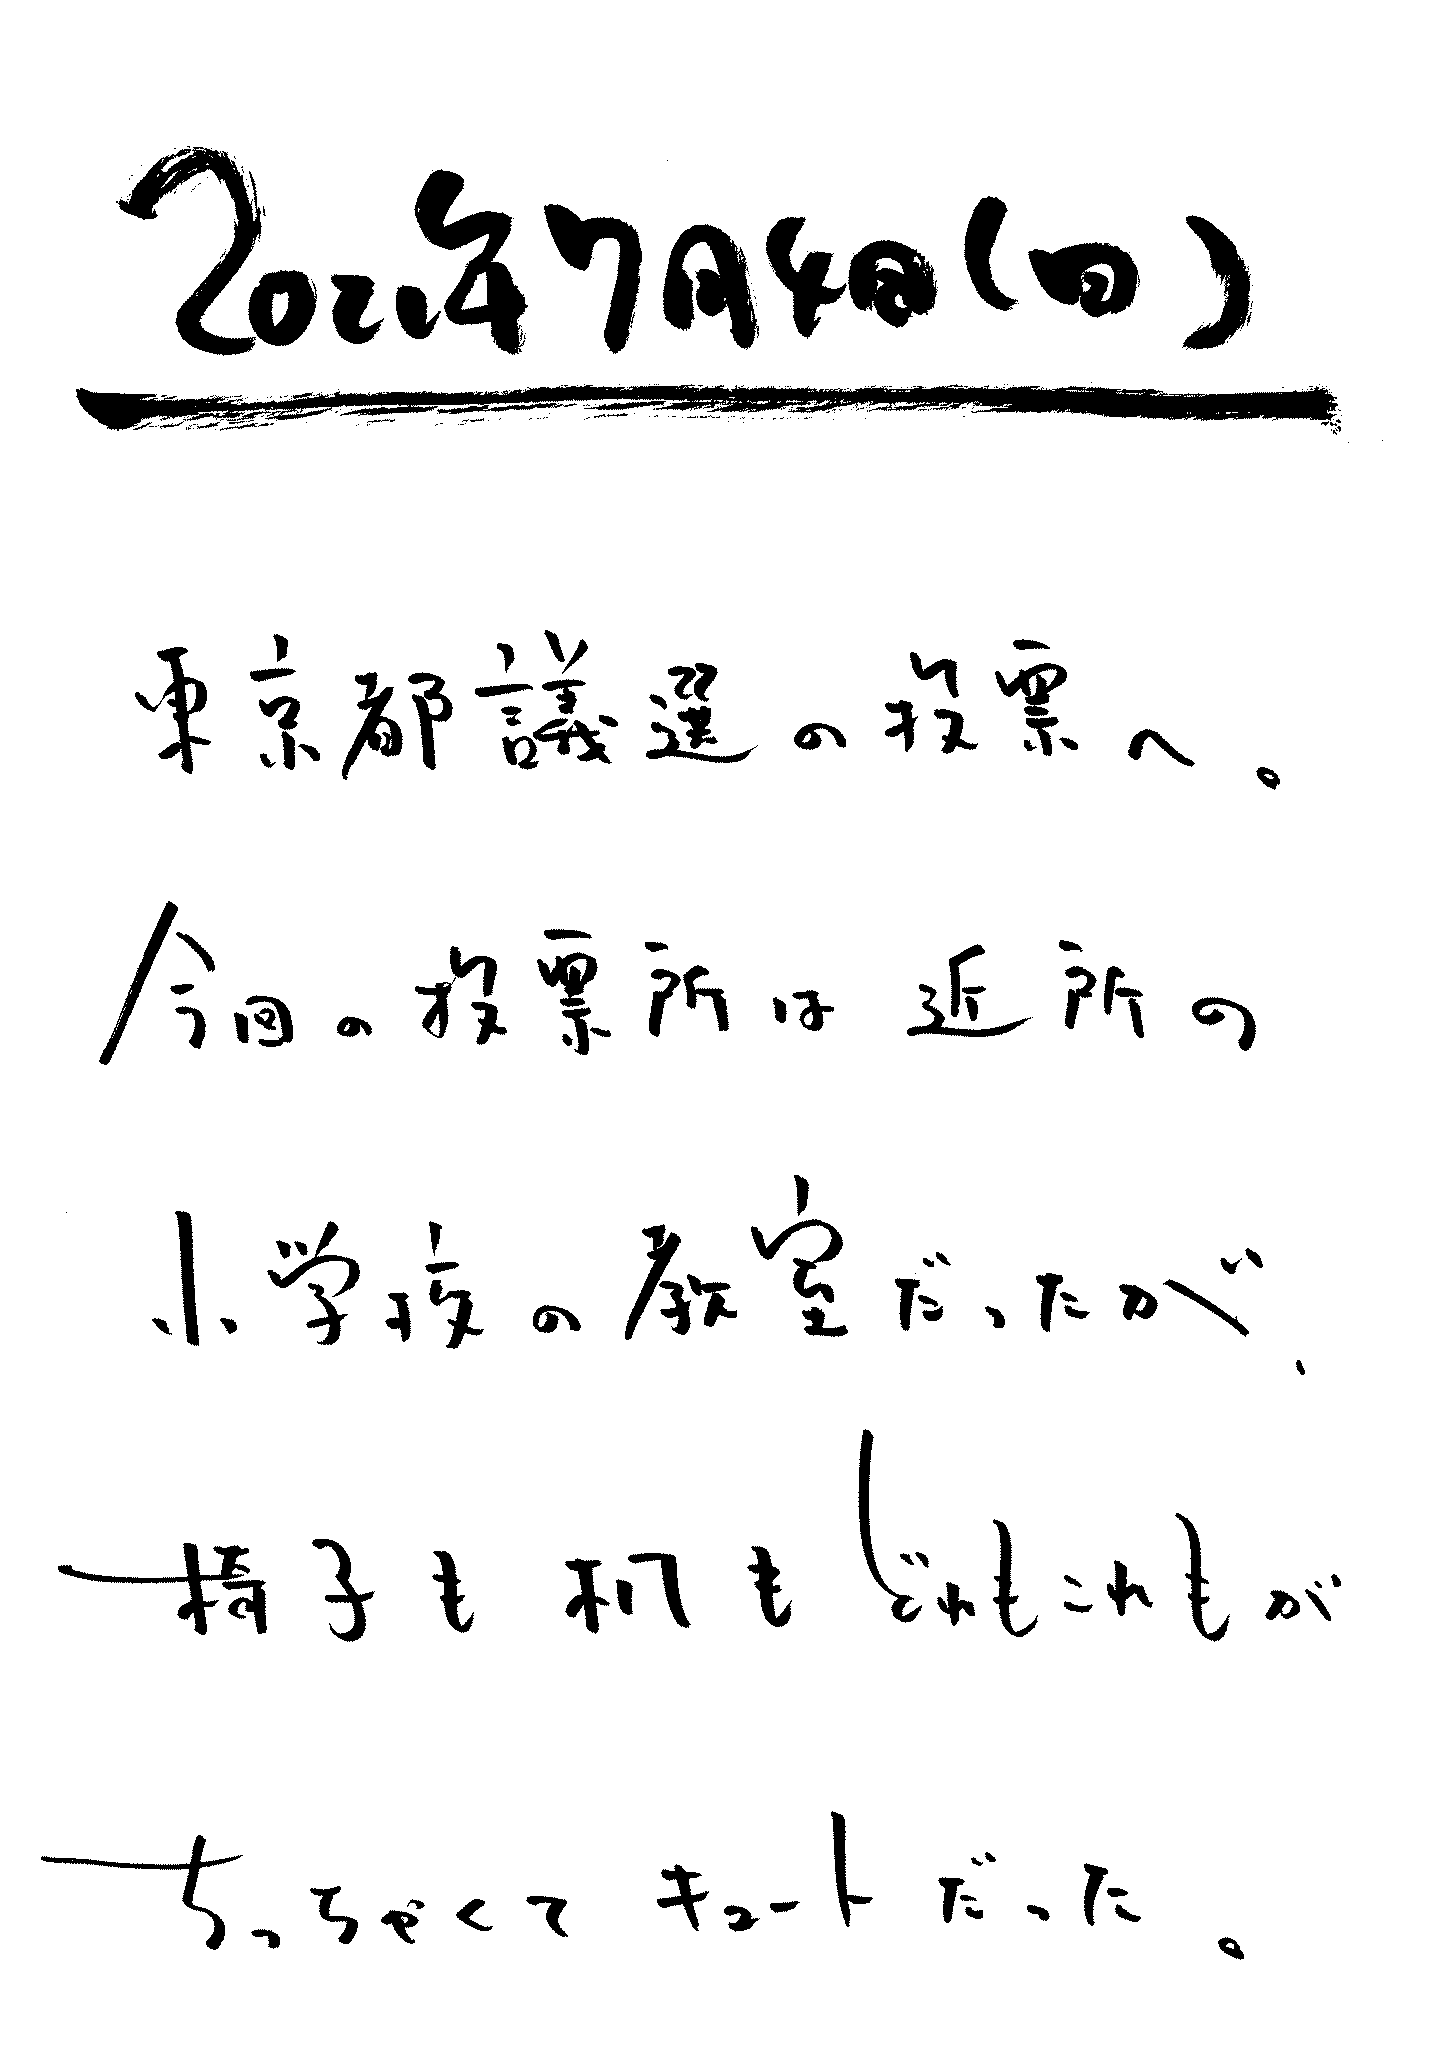 2021年7月4日(日)
東京都議選の投票へ。
今回の投票所は近所の
小学校の教室だったが、
椅子も机もどれもこれもが
ちっちゃくてキュートだった。